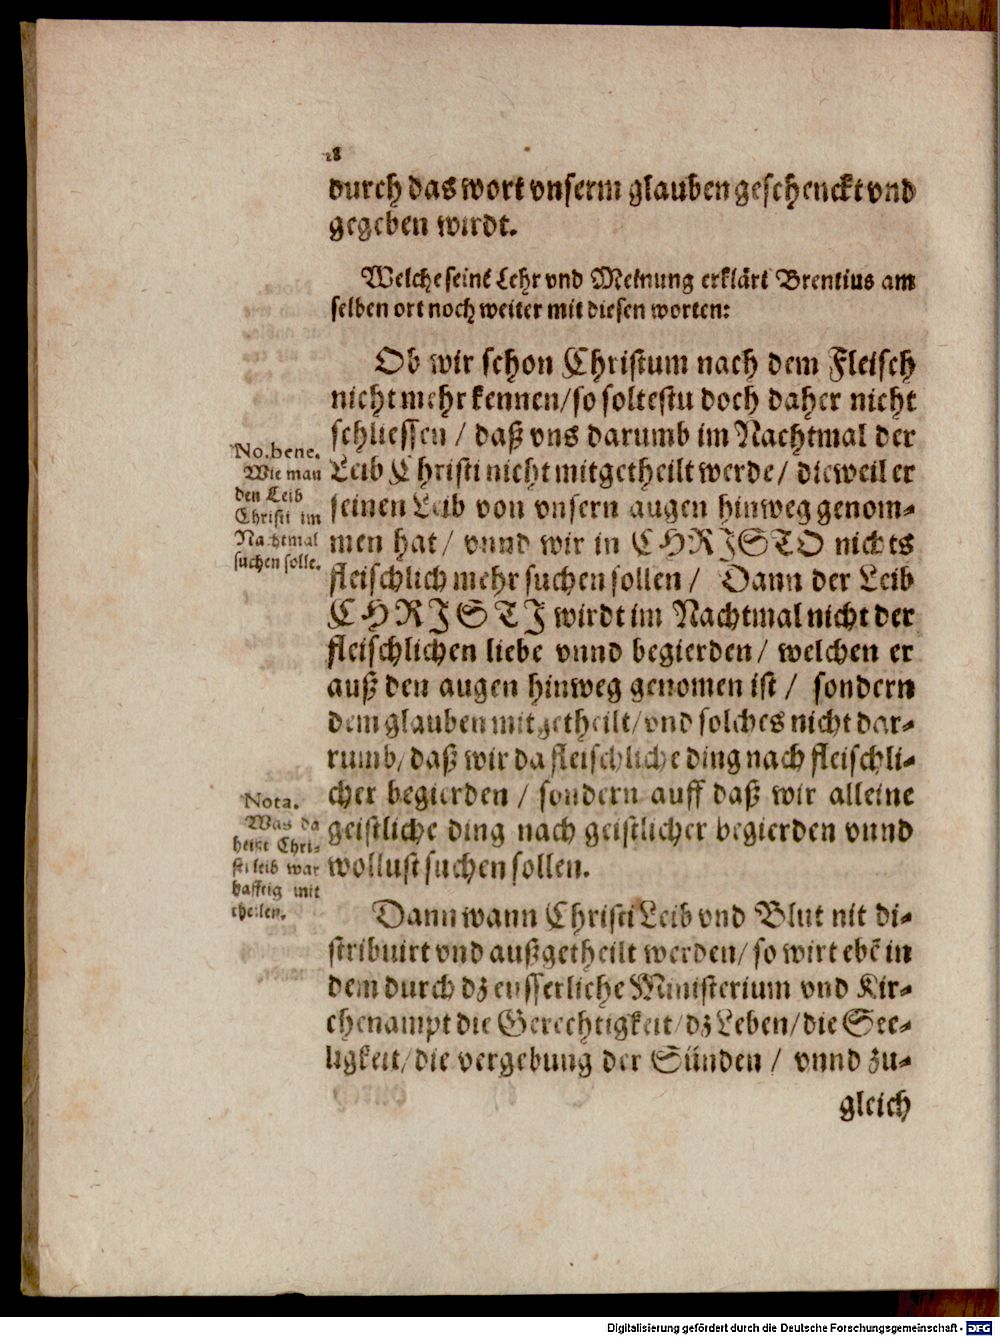 28
durch das wort vnserm glauben geschenckt vnd
gegeben wirdt.
Welche seine Lehr vnd Meinung erklärt Brentius am
selben ort noch weiter mit diesen worten:
Ob wir schon Christum nach dem Fleisch
nicht mehr kennen/so soltestu doch daher nicht
schliessen / daß vns darumb im Nachtmal der
Leib Christi nicht mitgetheilt werde/ dieweil er
seinen Leib von vnsern augen hinweg genom-
men hat/ vnnd wir in CHRISTO nichts
fleischlich mehr suchen sollen / Dann der Leib
CHRISTI wirdt im Nachtmal nicht der
fleischlichen liebe vnnd begierden/ welchen er
auß den augen hinweg genomen ist / sondern
dem glauben mitgetheilt/vnd solches nicht dar-
rumb/daß wir da fleischliche ding nach fleischli-
cher begierden / sondern auff daß wir alleine
geistliche ding nach geistlicher begierden vnnd
wollust suchen sollen.
No.bene.
Wie man
den Leib
Christi im
Nachtmal
suchen solle.
Nota.
Was da
heist Chri-
sti leib war
hafftig mit
theilen.
Dann wann Christi Leib vnd Blut nit di-
stribuirt vnd außgetheilt werden/ so wirt ebē in
dem durch dz eusserliche Ministerium vnd Kir-
chenampt die Gerechtigkeit/dz Leben/die See-
ligkeit/die vergebung der Sünden / vnnd zu-
gleich
Digitalisierung gefördert durch die Deutsche Forschungsgemeinschaft - DFG